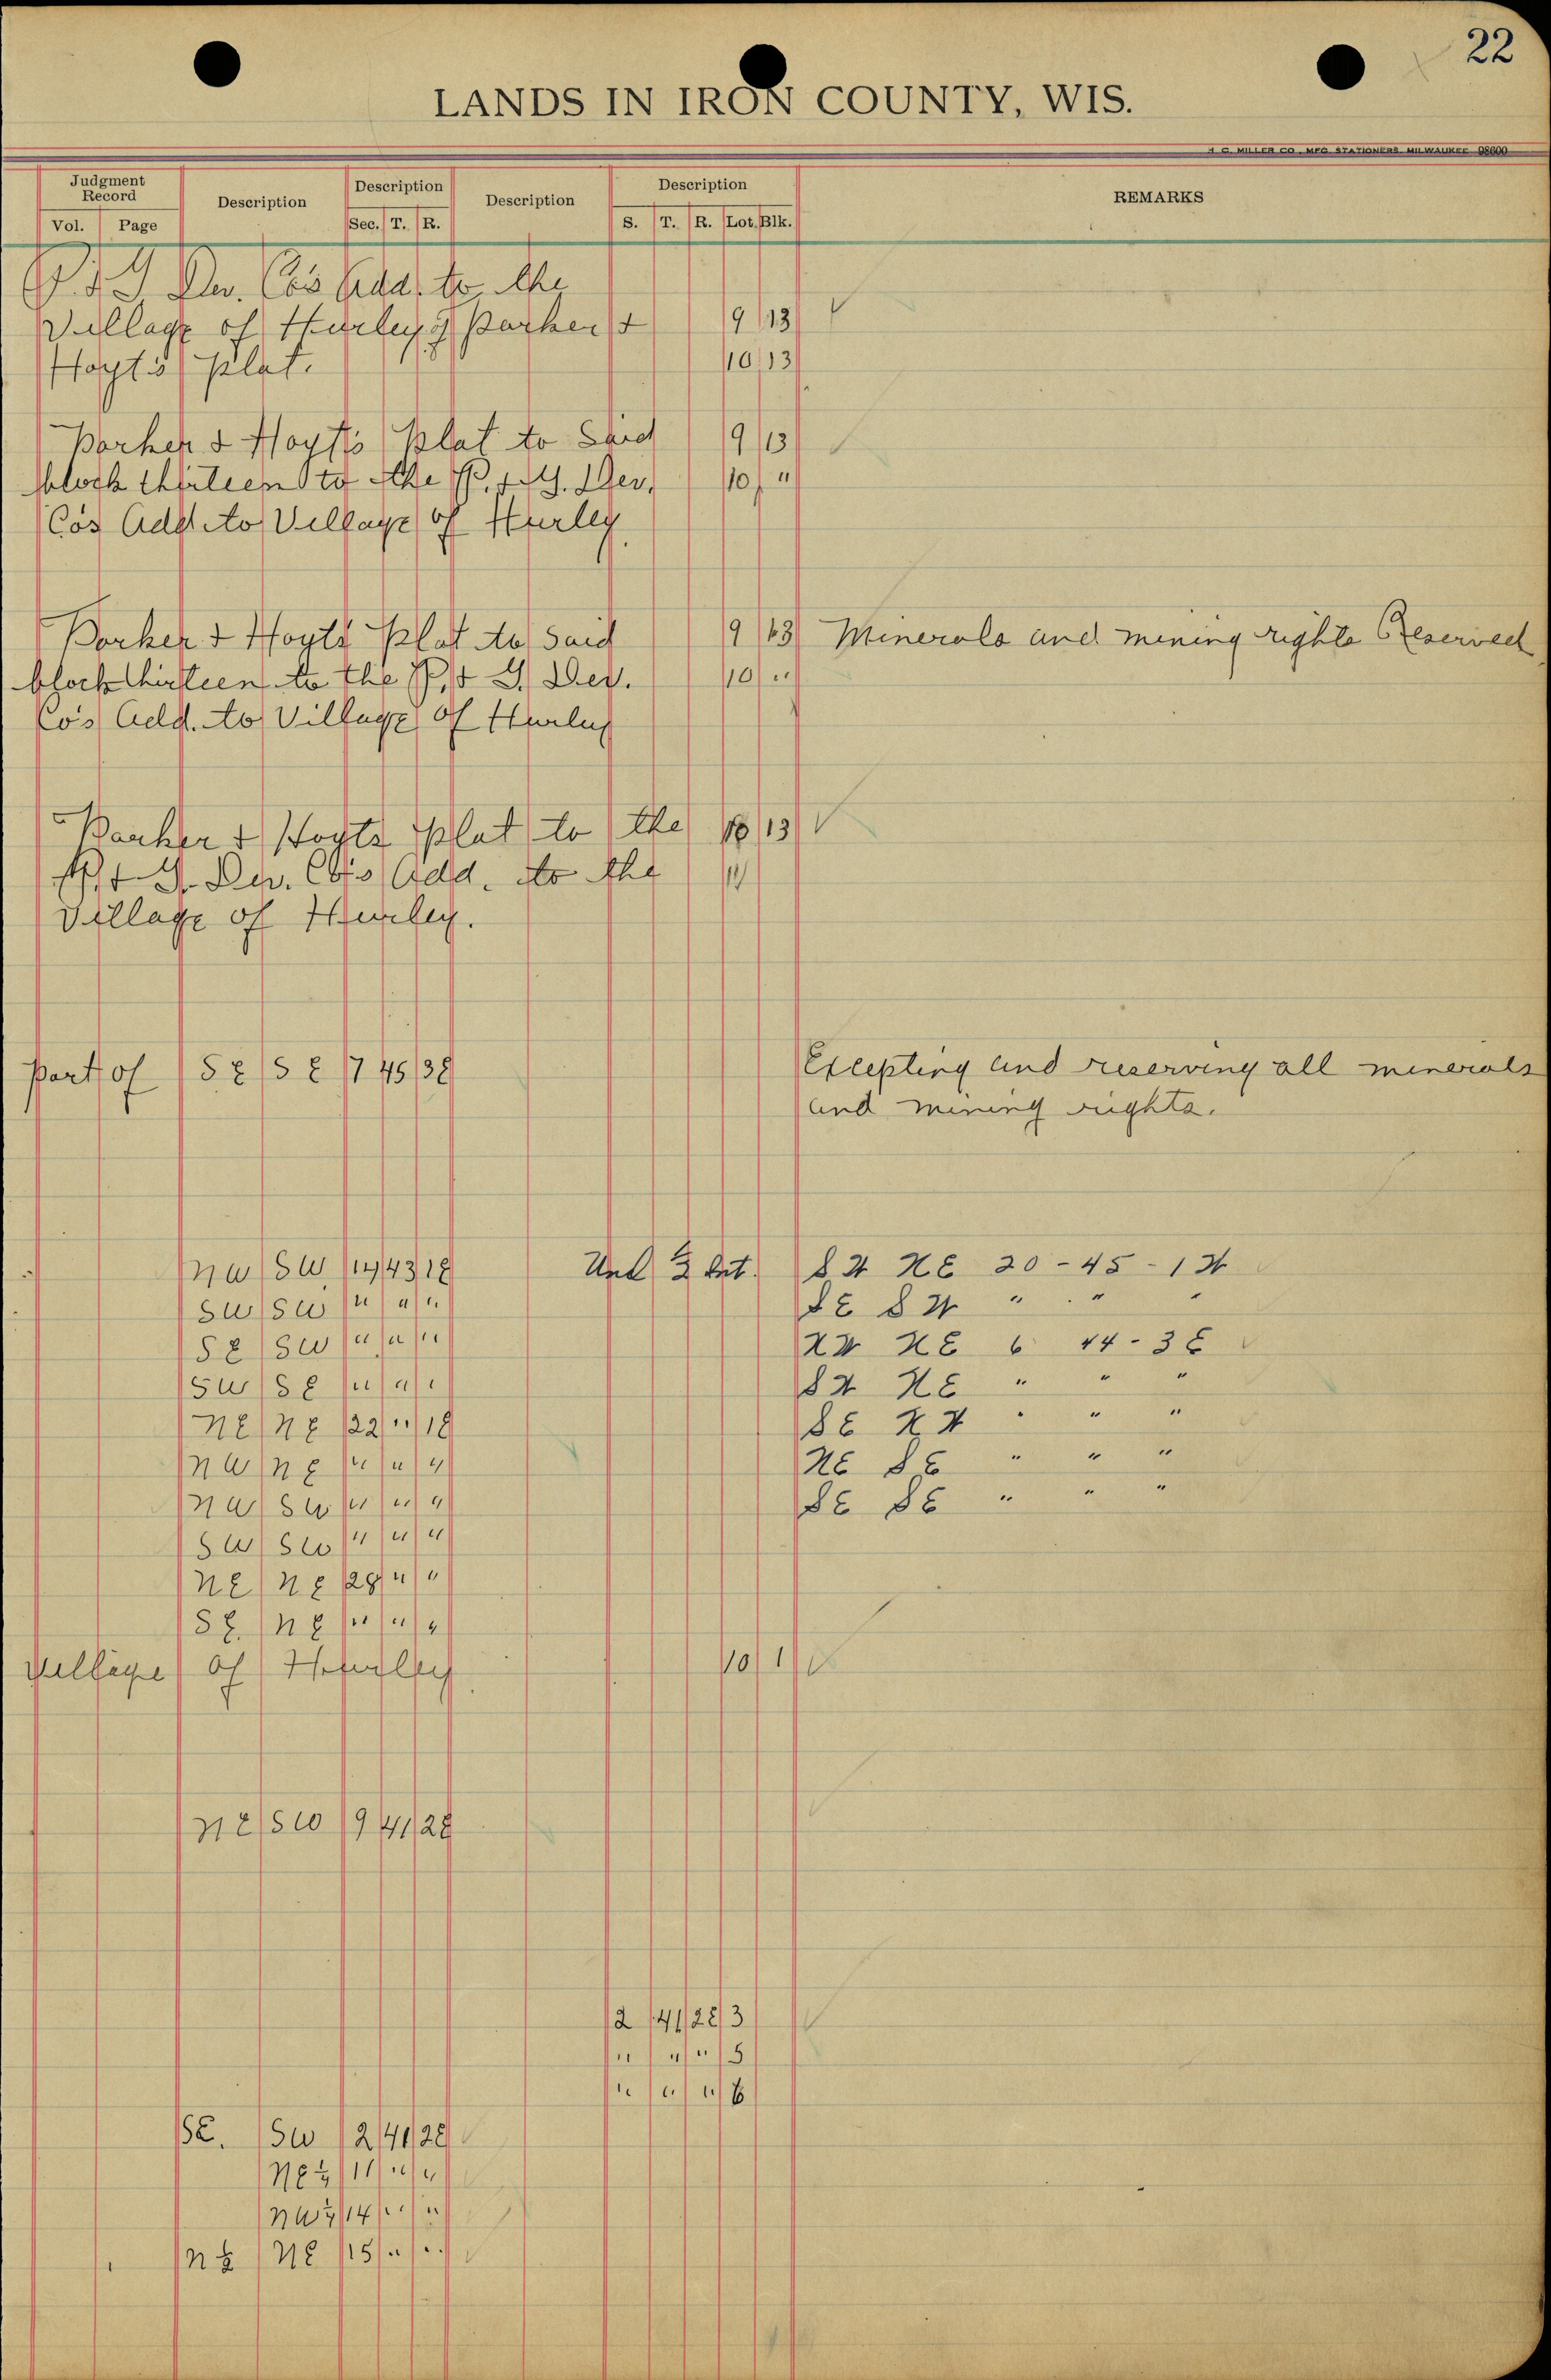 22
LANDS IN IRON COUNTY, WIS.
H. C. MILLER CO., MFG. STATIONERS, MILWAUKEE 98600
Judgment Record Description Description Description Description REMARKS
Vol. Page Sec. T. R. S. T. R. Lot. Blk.
P. & G. Dev. Co's Add. to the
Village of Hurley & Parker & 9 13
Hoyt's Plat. 10 13
Parker & Hoyt's Plat to Said 9 13
block thirteen to the P. & G. Dev. 10 "
Co's Add to Village of Hurley
Parker & Hoyts Plat to Said 9 13 Minerals and mining rights Reserved
block thirteen to the P. & G. Dev. 10 "
Co's Add. to Village of Hurley
Parker & Hoyts Plat to the 10 13
P. & G. Dev. Co's Add. to the 11
Village of Hurley.
Part of SE SE 17 45 38 Excepting and reserving all minerals
and mining rights.
NW SW 14 43 18 Und ½ Int. SW NE 20 - 45 - 1W
SW SW " " " SE SW " " "
SE SW " " " NW NE 6 44 - 3E
SW SE " " " SW NE " " "
NE NE 22 " 18 SE NW " " "
NW NE " " " NE SE " " "
NW SW " " " SE SE " " "
SW SW " " "
NE NE 28 " "
SE. NE " " "
Village of Hurley 10 1
NE SW 9 41 28
2 41 28 3
" " " 5
" " " 6
SE. SW 2 41 28
NE¼ 11 " "
NW¼ 14 " "
N½ NE 15 " "